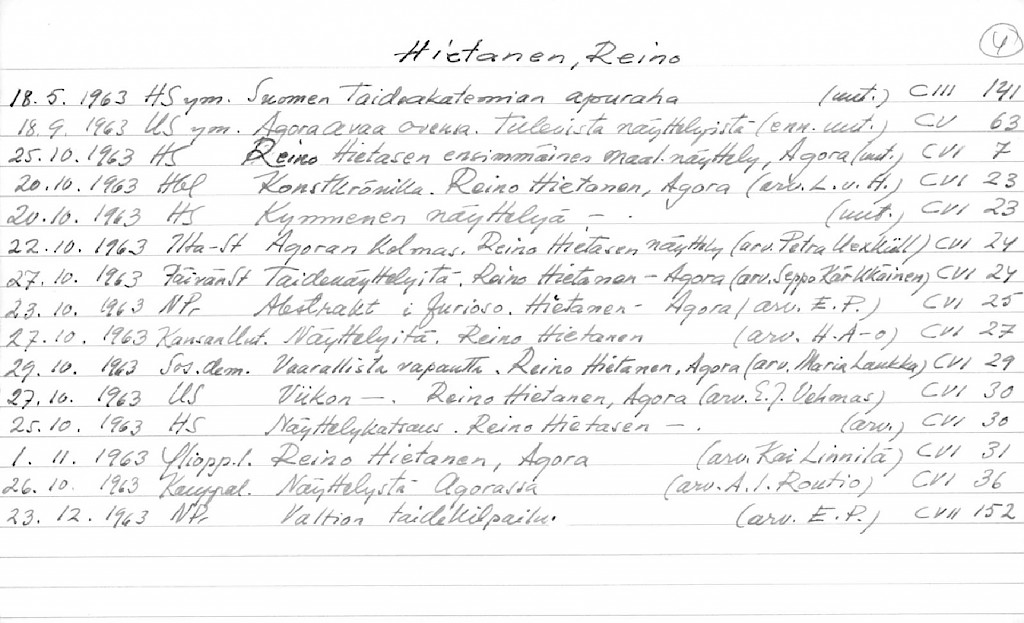 4
Hietanen, Reino
18. 5. 1963 HS ym. Suomen Taideakatemian apuraha (uut.) CIII 141
18. 9. 1963 US ym. Agora avaa ovensa. Tulevista näyttelyistä (enn. uut.) CV 63
25. 10. 1963 HS Reino Hietasen ensimmäinen maal. näyttely, Agora (uut.) CVI 7
20. 10. 1963 Hbl Konstkrönika. Reino Hietanen, Agora (arv. L. v. H.) CVI 23
20. 10. 1963 HS Kymmenen näyttelyä - . (uut.) CVI 23
22. 10. 1963 Ilta-St Agoran kolmas. Reino Hietasen näyttely (arv. Petra Uexküll) CVI 24
27. 10. 1963 PäivänSt Taidenäyttelyitä. Reino Hietanen - Agora (arv. Seppo Kärkkäinen) CVI 24
23. 10. 1963 NPr Abstrakt i furioso. Hietanen - Agora (arv. E. P.) CVI 25
27. 10. 1963 KansanUut. Näyttelyitä. Reino Hietanen (arv. H. A-o) CVI 27
29. 10. 1963 Sos. dem. Vaarallista vapautta. Reino Hietanen, Agora (arv. Maria Laukka) CVI 29
27. 10. 1963 US Viikon - . Reino Hietanen, Agora (arv. E. J. Vehmas) CVI 30
25. 10. 1963 HS Näyttelykatsaus. Reino Hietasen - . (arv.) CVI 30
1. 11. 1963 Yliopp.l. Reino Hietanen, Agora (arv. Kai Linnilä) CVI 31
26. 10. 1963 Kauppal. Näyttelystä Agorassa (arv. A. I. Routio) CVI 36
23. 12. 1963 NPr Valtion taidekilpailu. (arv. E. P.) CVII 152